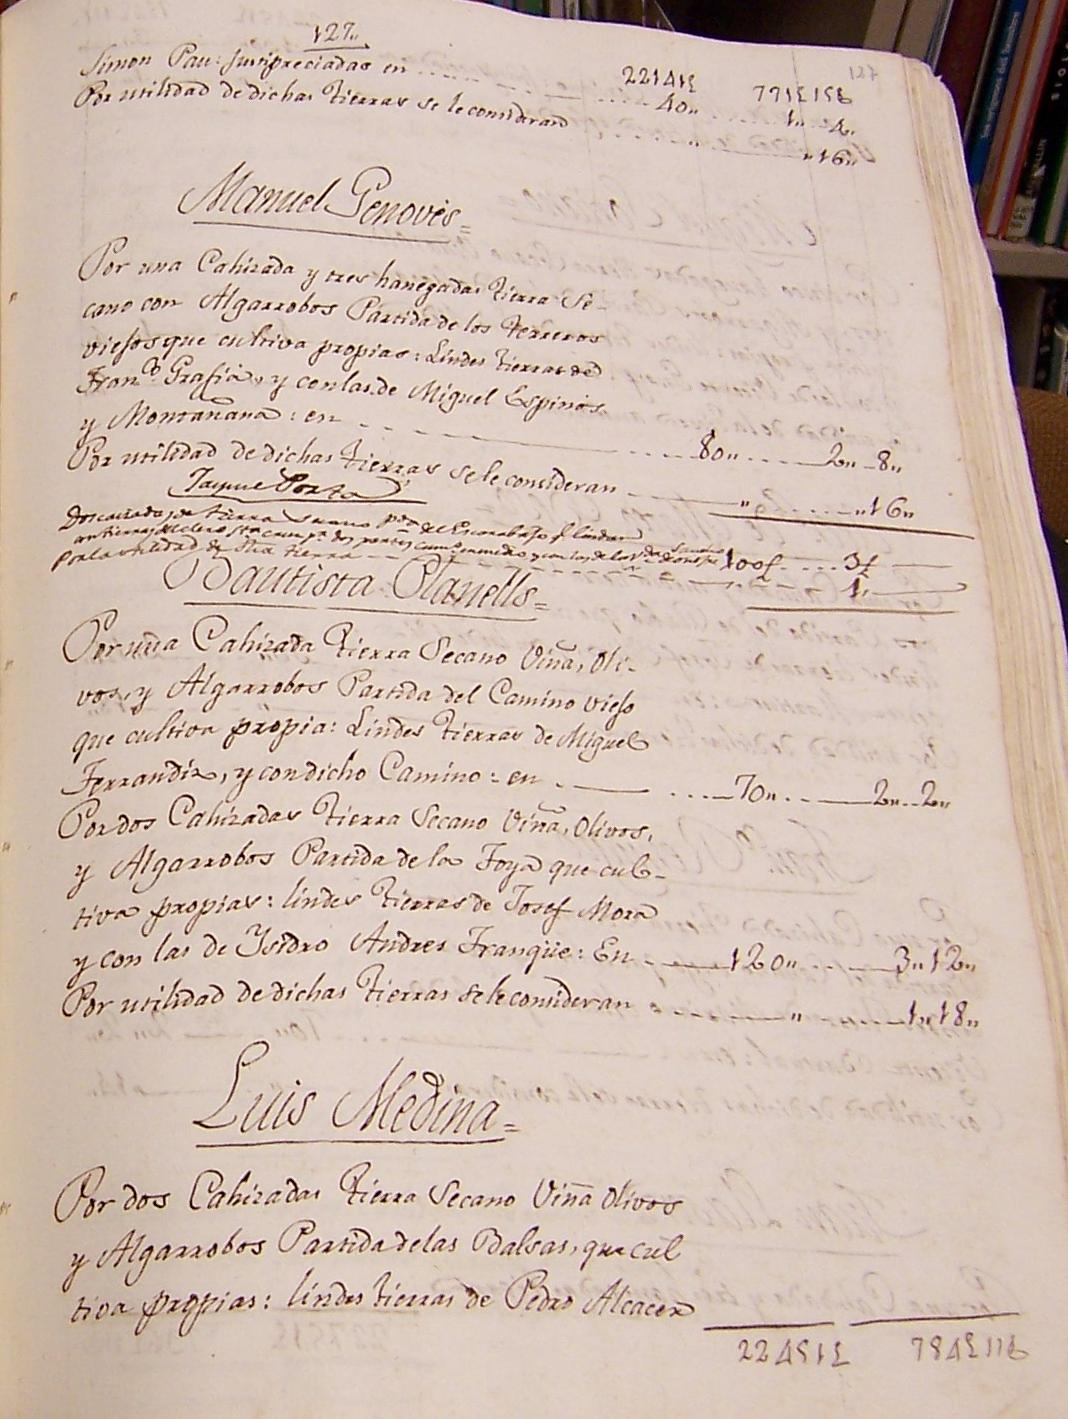 127„
127
Simon Pau: justipreciadas en
221413 7713158
Por utilidad de dichas tierras se le consideran 40„ 1„ 4„
„ „16„
Manuel Genovès=
Por una Cahizada y tres hanegadas tierra Se-
cano con Algarrobos Partida de los terreros
viejos que cultiva propias: Lindes tierras de
Franco. Grafià, y con las de Miguel Espinòs
y Montañana: en 80„ 2„ 8„
Por utilidad de dichas tierras se le consideran „ „16„
Jayme Porta
del Escarabajo
Por la utilidad de dha tierra 100f 3f
1„
Bautista Planells=
Por una Cahizada tierra Secano Viña, Oli-
vos, y Algarrobos Partida del Camino viejo
que cultiva propia: Lindes tierras de Miguel
Ferrandiz, y con dicho Camino: en 70„ 2„ 2„
Por dos Cahizadas tierra Secano Viña, Olivos,
y Algarrobos Partida de la Foya que cul-
tiva propias: lindes tierras de Josef Mora
y con las de Ysidro Andres Franqüe: En 120„ 3„12„
Por utilidad de dichas tierras se le consideran „ 1„18„
Luis Medina=
Por dos Cahizadas tierra Secano Viña Olivos
y Algarrobos Partida de las Balsas, que cul
tiva propias: lindes tierras de Pedro Alcacer